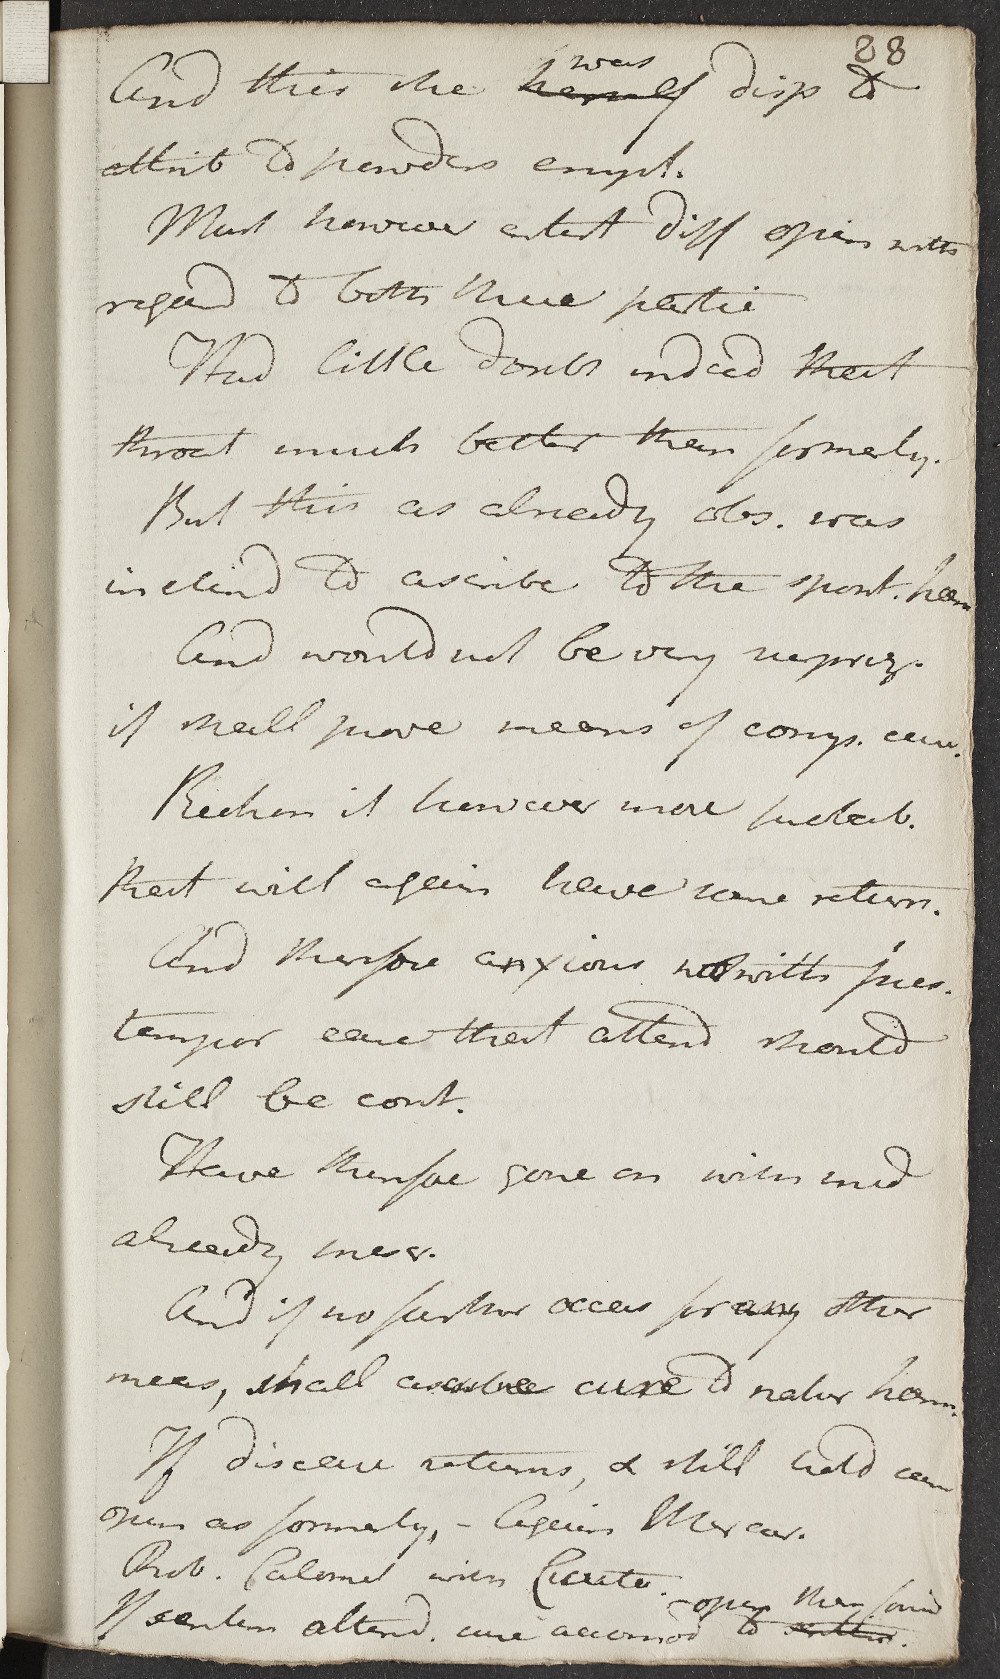 88
And this she was disp to
attrib to powders empl.
Must however entert diff opin with
regard to both these partic
Had little doubt indeed that
throat much better than formerly.
But this as already obs. was
inclind to ascribe to the spont. haem
And would not be very surpriz.
if shall prove means of comp. cure.
Reckon it however more probab.
that will again have some return.
And therefore anxious notwith pres.
tempor ease that attend should
still be cont.
Have therefore gone on with med
already ment.
And if no further occas for any other
meas, shall ascribe cure to natur haem.
If disease returns, & still hold
open as formerly, - Again Mercur.
Prob. Calomel with Cicuta.
open then found
If sanken attend. cure accomod to